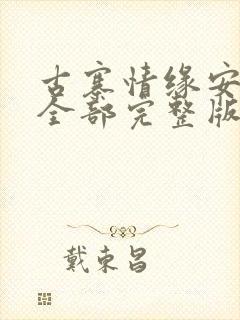 古寨情缘安
全部完整版
戴东昌